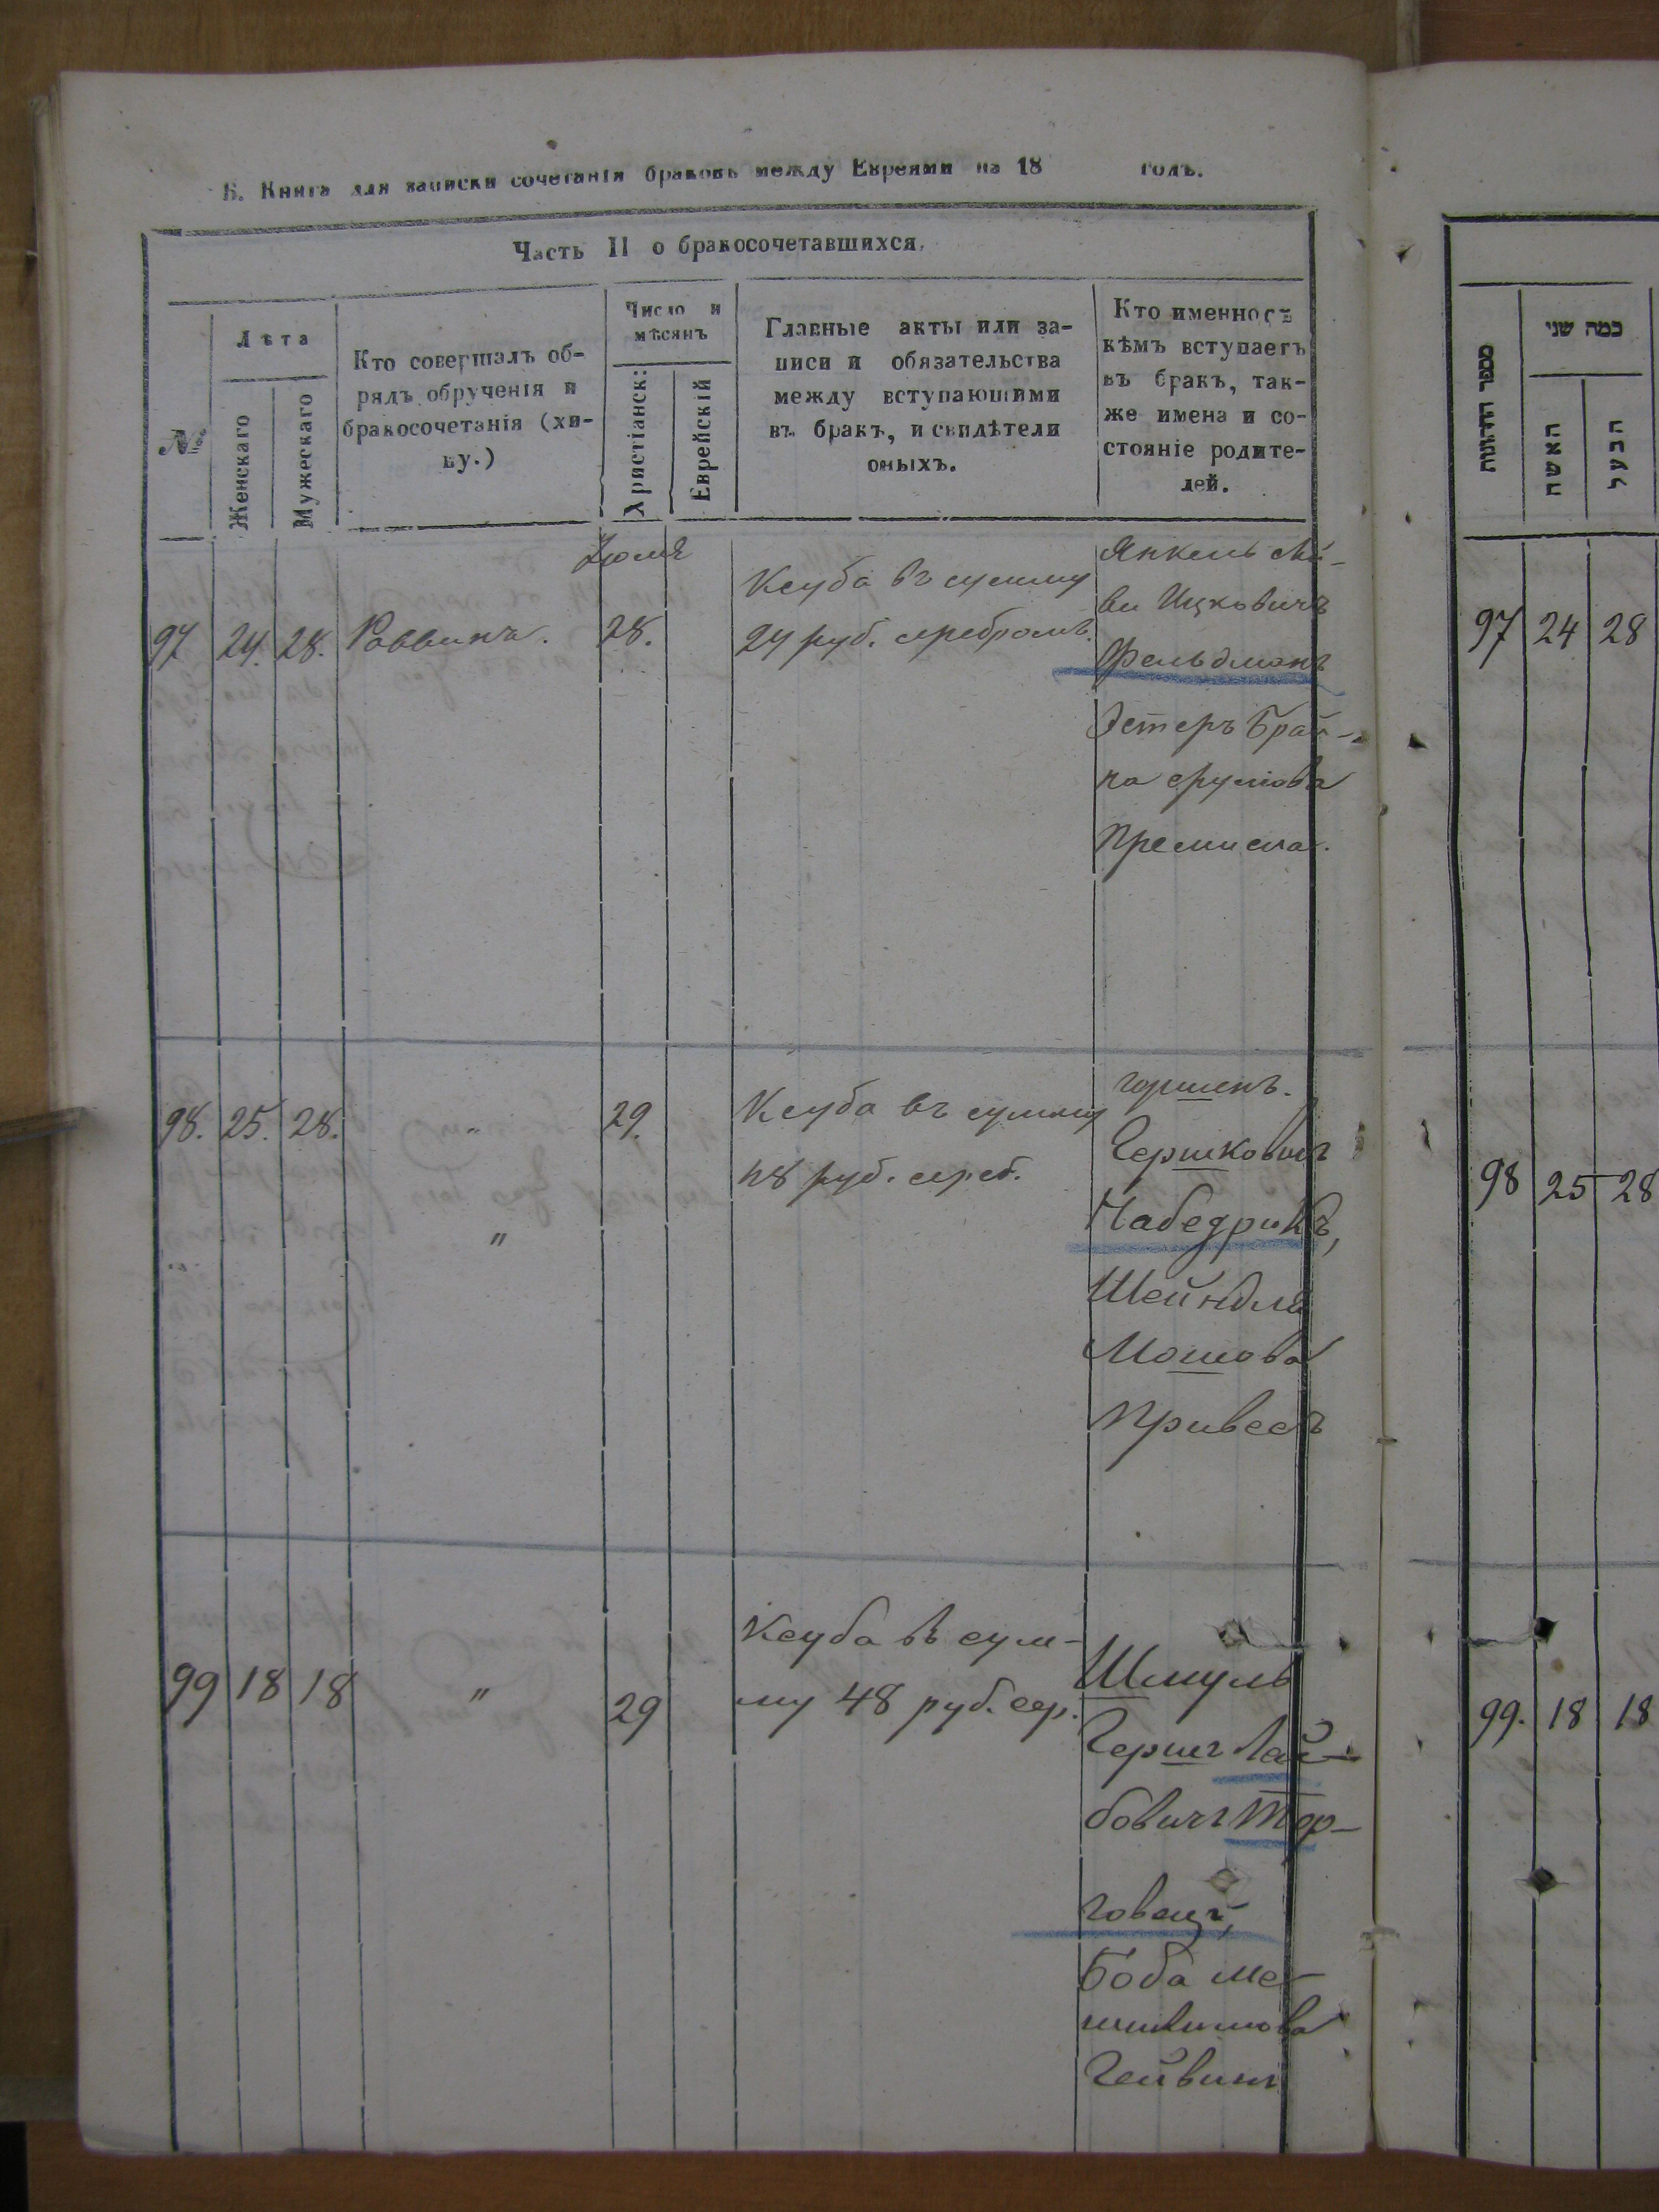 Б. Книга для записки сочетанія браковъ между Евреями на 18 годъ.
Часть II о бракосочетавшихся.
№
Лѣта
Женскаго
Мужескаго
Кто совершалъ об-
рядъ обрученія и
бракосочетанія (хи-
пу.)
Число и
мѣсяцъ
Христіанск:
Еврейскій
Главные акты или за-
писи и обязательства
между вступающими
въ бракъ, и свидѣтели
оныхъ.
Кто именно съ
кѣмъ вступаетъ
въ бракъ, так-
же имена и со-
стояніе родите-
лей.
97 24. 28. Раввинъ.
Іюля
28.
Ксуба въ сумму
24 руб. серебромъ.
Янкель Лей-
Ицковичъ
Фельдманъ
Эстеръ Брай-
на Срулова
Премисла.
98. 25. 28. "
"
29.
Ксуба въ сумму
48 руб. сереб.
Гершковичъ
Набедрикъ,
Шейндля
Мошова
Привесъ
99 18 18 "
29
Ксуба въ сум-
му 48 руб. сер.
Шмуль
Гершъ Лей-
бовичъ Тор-
говецъ,
Боба
Гейвишъ
מספר החתונות
כמה שני
האשה
הבעל
97 24 28
98 25 28
99. 18 18